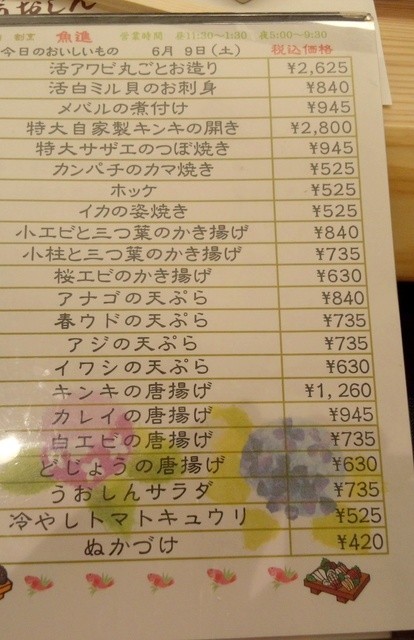 魚進 営業時間 昼11:30~1:30 夜5:00~9:30
今日のおいしいもの 6月9日(土) 税込価格
活アワビ丸ごとお造り ¥2,625
活白ミル貝のお刺身 ¥840
メバルの煮付け ¥945
特大自家製キンキの開き ¥2,800
特大サザエのつぼ焼き ¥945
カンパチのカマ焼き ¥525
ホッケ ¥525
イカの姿焼き ¥525
小エビと三つ葉のかき揚げ ¥840
小柱と三つ葉のかき揚げ ¥735
桜エビのかき揚げ ¥630
アナゴの天ぷら ¥840
春ウドの天ぷら ¥735
アジの天ぷら ¥735
イワシの天ぷら ¥630
キンキの唐揚げ ¥1,260
カレイの唐揚げ ¥945
白エビの唐揚げ ¥735
どじょうの唐揚げ ¥630
うおしんサラダ ¥735
冷やしトマトキュウリ ¥525
ぬかづけ ¥420